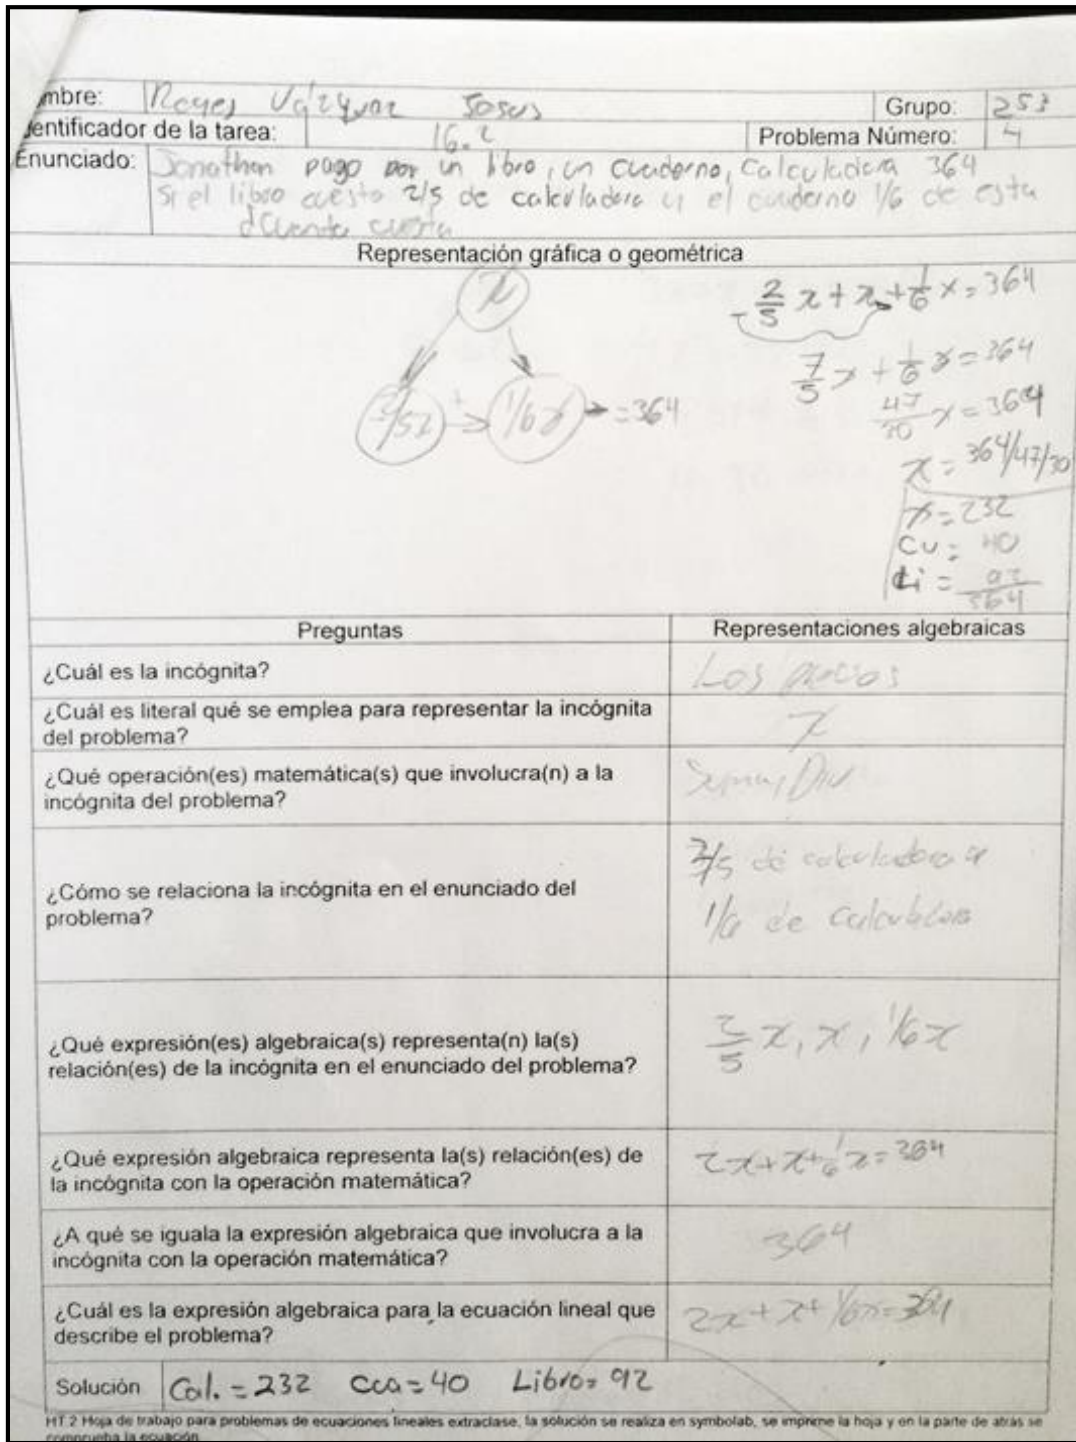 mbre: Reyes Vázquez Jesus Grupo: 253
dentificador de la tarea: 16.2 Problema Número: 4
Enunciado: Jonathan pago por un libro, un cuaderno, calculadora 364
Si el libro cuesto 2/5 de calculadora y el cuaderno 1/6 de esta
d'Cuanto cuesta
Representación gráfica o geométrica
x
2/5x + 1/6x = 364
2/5 x + x + 1/6 x = 364
7/5 x + 1/6 x = 364
47/30 x = 364
x = 364/47/30
x = 232
Cu = 40
Li = 92
364
Preguntas Representaciones algebraicas
¿Cuál es la incógnita? Los precios
¿Cuál es literal qué se emplea para representar la incógnita x
del problema?
¿Qué operación(es) matemática(s) que involucra(n) a la Suma, Div
incógnita del problema?
2/5 de calculadora y
¿Cómo se relaciona la incógnita en el enunciado del
problema?
1/6 de calculadora
¿Qué expresión(es) algebraica(s) representa(n) la(s) 2/5 x, x, 1/6x
relación(es) de la incógnita en el enunciado del problema?
¿Qué expresión algebraica representa la(s) relación(es) de 2x+x+1/6x=364
la incógnita con la operación matemática?
¿A qué se iguala la expresión algebraica que involucra a la 364
incógnita con la operación matemática?
¿Cuál es la expresión algebraica para la ecuación lineal que 2x+x+1/6x=364
describe el problema?
Solución Cal. = 232 Cua = 40 Libro = 92
HT 2 Hoja de trabajo para problemas de ecuaciones lineales extraclase, la solución se realiza en symbolab, se imprime la hoja y en la parte de atrás se
comprueba la ecuación